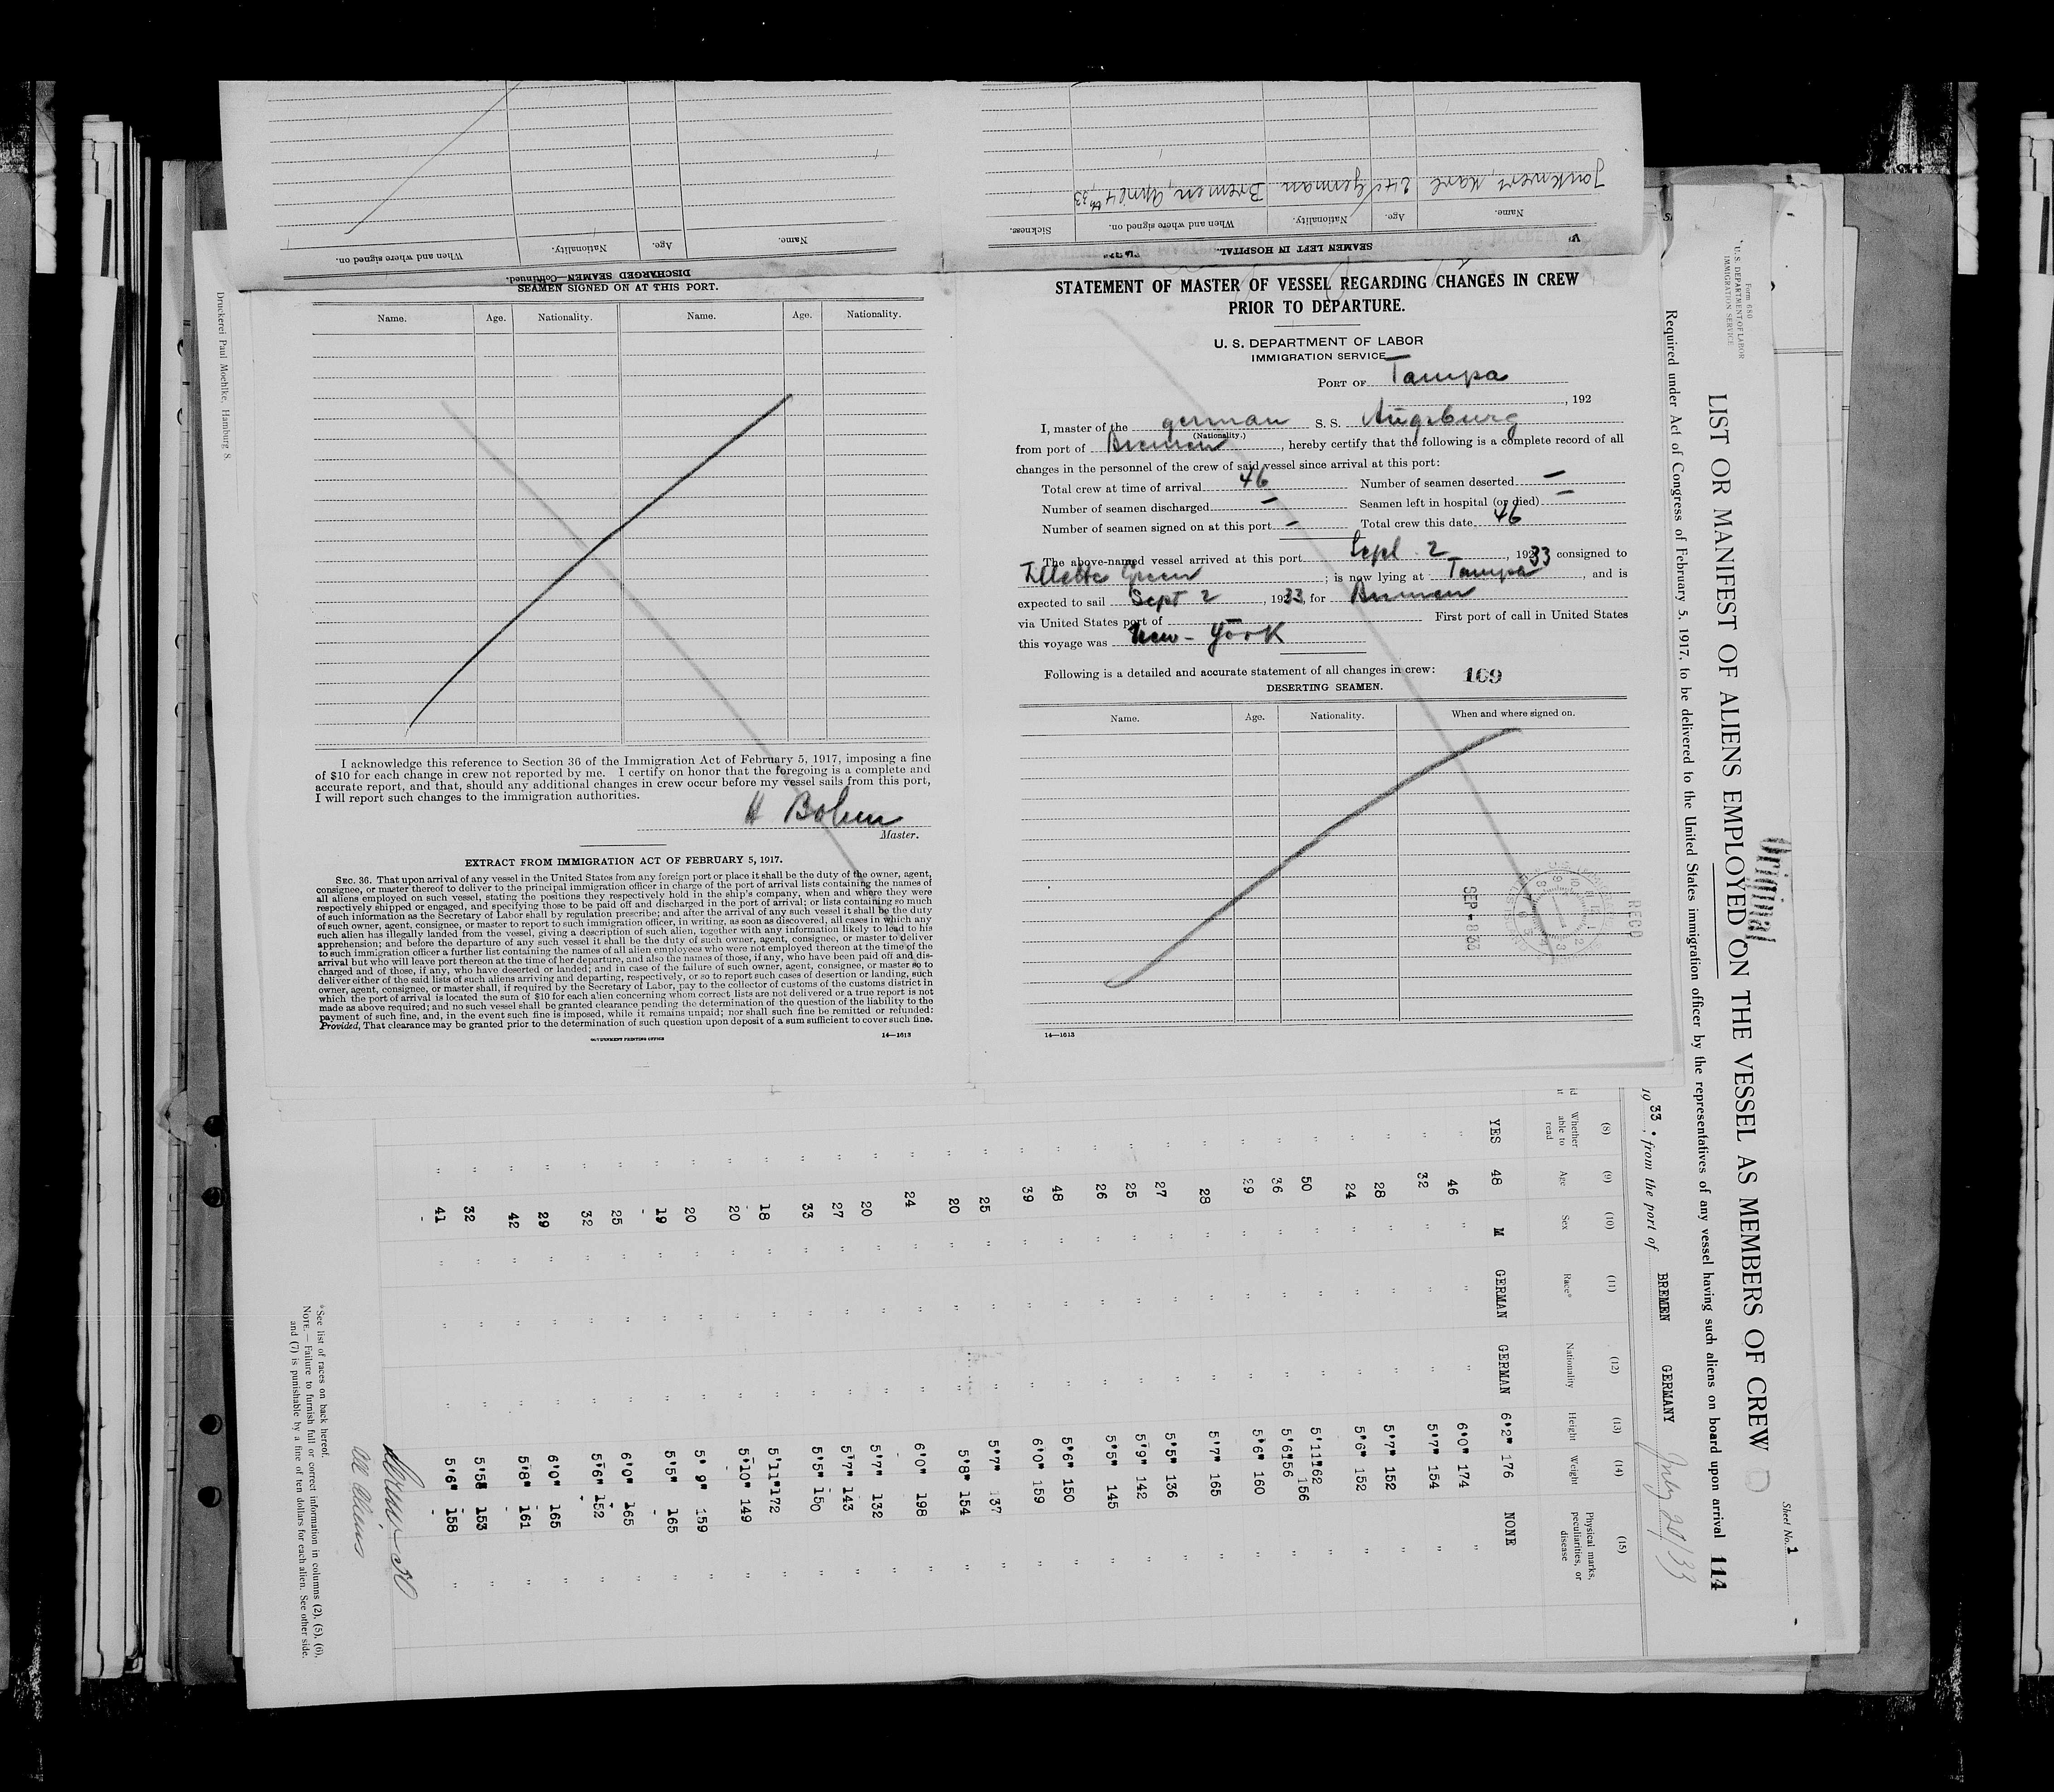 Name. Age. Nationality. When and where signed on.
DISCHARGED SEAMEN—Continued.
Karl 24 German Bremen, April 4th 33
Name. Age. Nationality. When and where signed on. Sickness.
SEAMEN LEFT IN HOSPITAL.
Druckerei Paul Moehlke, Hamburg 8.
SEAMEN SIGNED ON AT THIS PORT.
Name. Age. Nationality. Name. Age. Nationality.
I acknowledge this reference to Section 36 of the Immigration Act of February 5, 1917, imposing a fine
of $10 for each change in crew not reported by me. I certify on honor that the foregoing is a complete and
accurate report, and that, should any additional changes in crew occur before my vessel sails from this port,
I will report such changes to the immigration authorities.
H
Master.
EXTRACT FROM IMMIGRATION ACT OF FEBRUARY 5, 1917.
SEC. 36. That upon arrival of any vessel in the United States from any foreign port or place it shall be the duty of the owner, agent,
consignee, or master thereof to deliver to the principal immigration officer in charge of the port of arrival lists containing the names of
all aliens employed on such vessel, stating the positions they respectively hold in the ship's company, when and where they were
respectively shipped or engaged, and specifying those to be paid off and discharged in the port of arrival; or lists containing so much
of such information as the Secretary of Labor shall by regulation prescribe; and after the arrival of any such vessel it shall be the duty
of such owner, agent, consignee, or master to report to such immigration officer, in writing, as soon as discovered, all cases in which any
such alien has illegally landed from the vessel, giving a description of such alien, together with any information likely to lead to his
apprehension; and before the departure of any such vessel it shall be the duty of such owner, agent, consignee, or master to deliver
to such immigration officer a further list containing the names of all alien employees who were not employed thereon at the time of the
arrival but who will leave port thereon at the time of her departure, and also the names of those, if any, who have been paid off and dis-
charged and of those, if any, who have deserted or landed; and in case of the failure of such owner, agent, consignee, or master so to
deliver either of the said lists of such aliens arriving and departing, respectively, or so to report such cases of desertion or landing, such
owner, agent, consignee, or master shall, if required by the Secretary of Labor, pay to the collector of customs of the customs district in
which the port of arrival is located the sum of $10 for each alien concerning whom correct lists are not delivered or a true report is not
made as above required; and no such vessel shall be granted clearance pending the determination of the question of the liability to the
payment of such fine, and, in the event such fine is imposed, while it remains unpaid; nor shall such fine be remitted or refunded:
Provided, That clearance may be granted prior to the determination of such question upon deposit of a sum sufficient to cover such fine.
GOVERNMENT PRINTING OFFICE 14—1613
STATEMENT OF MASTER OF VESSEL REGARDING CHANGES IN CREW
PRIOR TO DEPARTURE.
U. S. DEPARTMENT OF LABOR
IMMIGRATION SERVICE
PORT OF Tampa
, 192
I, master of the german S. S. Augsburg
(Nationality.)
from port of Bremen, hereby certify that the following is a complete record of all
changes in the personnel of the crew of said vessel since arrival at this port:
Total crew at time of arrival 46 Number of seamen deserted —
Number of seamen discharged — Seamen left in hospital (or died) —
Number of seamen signed on at this port — Total crew this date 46
The above-named vessel arrived at this port Sept. 2, 1933 consigned to
Green ; is now lying at Tampa, and is
expected to sail Sept 2, 1933, for Bremen
via United States port of — First port of call in United States
this voyage was New-York
Following is a detailed and accurate statement of all changes in crew: 109
DESERTING SEAMEN.
Name. Age. Nationality. When and where signed on.
RECD
SEP - 8 33
14—1613
Form 680
U. S. DEPARTMENT OF LABOR
IMMIGRATION SERVICE
Original
Sheet No. 1
LIST OR MANIFEST OF ALIENS EMPLOYED ON THE VESSEL AS MEMBERS OF CREW
Required under Act of Congress of February 5, 1917, to be delivered to the United States immigration officer by the representatives of any vessel having such aliens on board upon arrival 114
1933, from the port of BREMEN GERMANY July 29/33
(8) (9) (10) (11) (12) (13) (14) (15)
Whether able to read Age Sex Race* Nationality Height Weight Physical marks, peculiarities, or disease
YES 48 M GERMAN GERMAN 6'2" 176 NONE
" 46 " " " 6'0" 174 "
" 32 " " " 5'7" 154 "
" 28 " " " 5'7" 152 "
" 24 " " " 5'6" 152 "
" 50 " " " 5'11" 162 "
" 36 " " " 5'6" 156 "
" 29 " " " 5'6" 160 "
" 28 " " " 5'7" 165 "
" 27 " " " 5'5" 136 "
" 25 " " " 5'9" 142 "
" 26 " " " 5'5" 145 "
" 48 " " " 5'6" 150 "
" 39 " " " 6'0" 159 "
" 25 " " " 5'7" 137 "
" 20 " " " 5'8" 154 "
" 24 " " " 6'0" 198 "
" 20 " " " 5'7" 132 "
" 27 " " " 5'7" 143 "
" 33 " " " 5'5" 150 "
" 18 " " " 5'11" 172 "
" 20 " " " 5'10" 149 "
" 20 " " " 5'9" 159 "
" 19 " " " 5'5" 165 "
" 25 " " " 6'0" 165 "
" 32 " " " 5'6" 152 "
" 29 " " " 6'0" 165 "
" 42 " " " 5'8" 161 "
" 32 " " " 5'5" 153 "
" 41 " " " 5'6" 158 "
30
All Aliens
*See list of races on back hereof.
NOTE.—Failure to furnish full or correct information in columns (2), (5), (6),
and (7) is punishable by a fine of ten dollars for each alien. See other side.